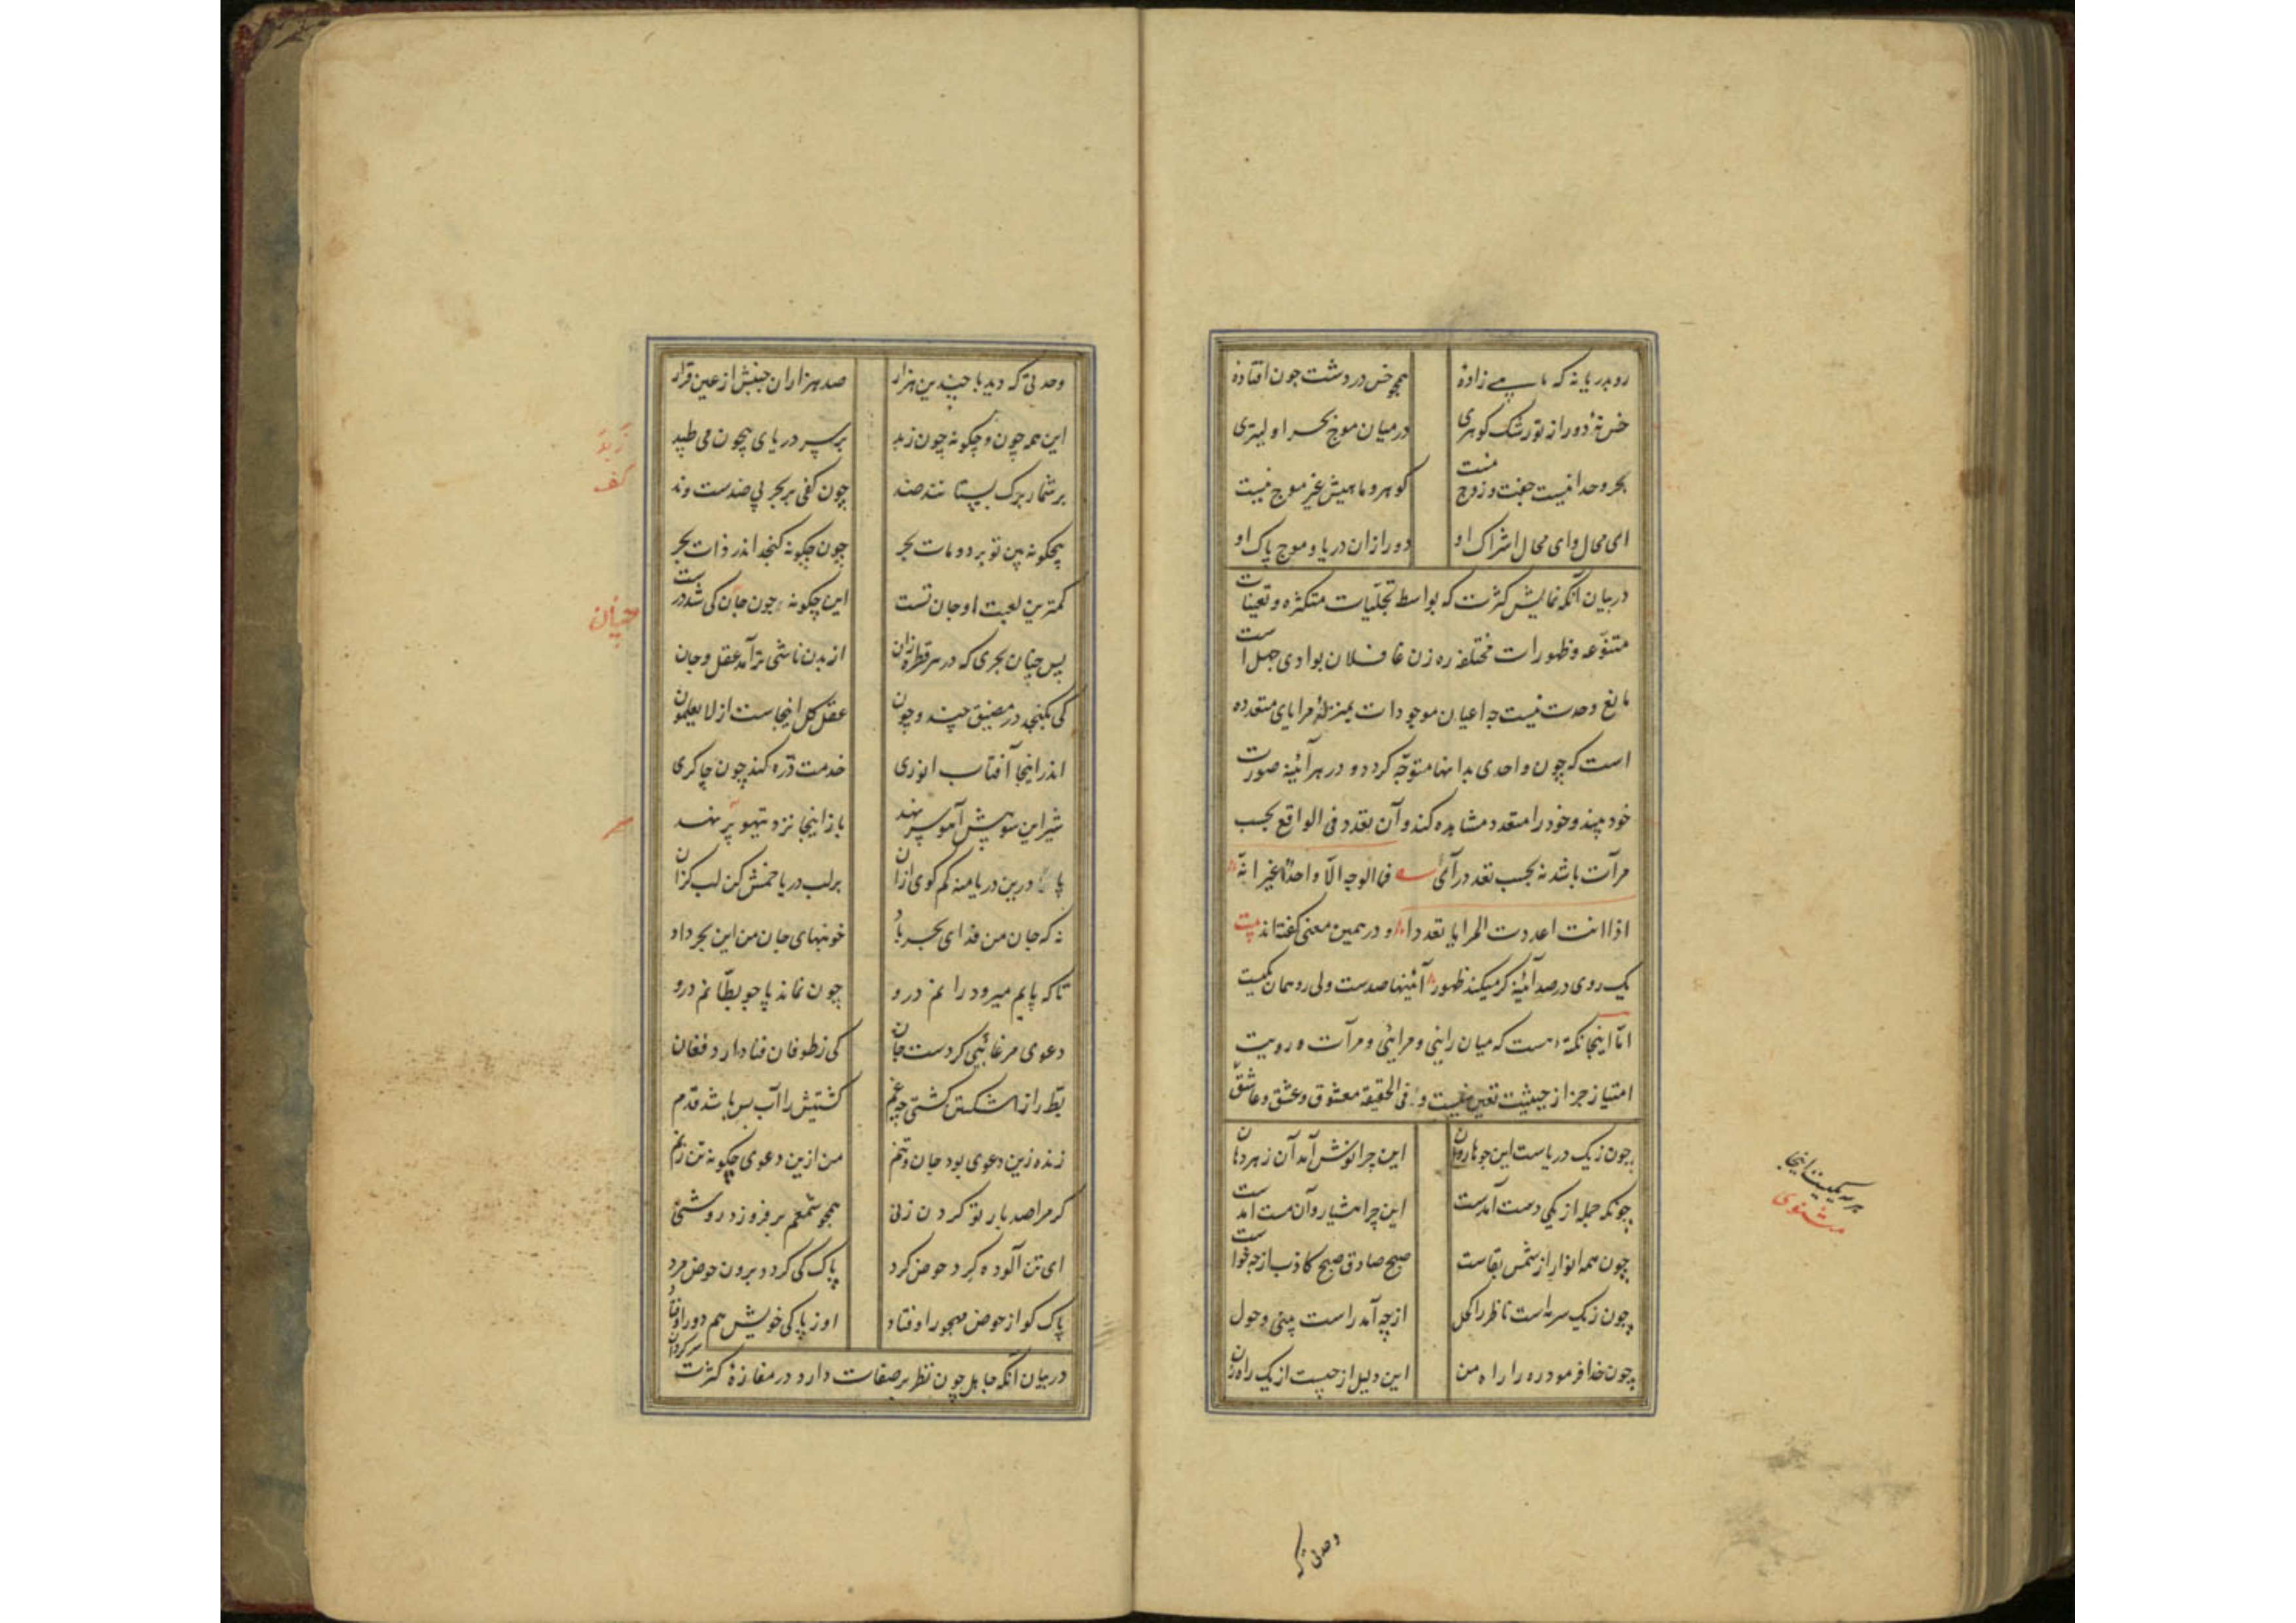 رو بدریا نه که ماهی زادهٔ همچو خس در دشت چون افتادهٔ
خس نهٔ دور از تو رشک گوهری در میان موج بحر اولیتری
بحر وحدانیست جفت و زوج نیست گوهر و ماهیش غیر موج نیست
ای محال و ای محال اشراک او دور ازان دریا و موج پاک او
در بیان آنکه نمایش کثرت که بواسطه تجلیات متکثره و تعینات
متنوعه و ظهورات مختلفه ره زن غافلان بوادی جهل است
مانع وحدت نیست چه اعیان موجودات بمنزلهٔ مرایای متعدده
است که چون واحدی بدانها متوجه کردد و در هر آئینه صورت
خود بیند و خود را متعدد مشاهده کند و آن تعدد فی الواقع بحسب
مرآت باشد نه بحسب تعدد رآی فما الوجه الا واحد غیر انه
اذا انت اعددت المرایا تعددا و در همین معنی گفته‌اند بیت
یک روی در صد آئینه کر میکند ظهور آئینها صدست ولی رو همان یکیست
اما اینجا نکتهٔ هست که میان رائی و مرائی و مرآت و رویت
امتیاز جز از حیثیت تعین نیست و فی الحقیقة معشوق و عشق و عاشق
هر سه یکیست اینجا
مثنوی
چون ز یک دریاست این جوها روان این چرا نوش آمد آن زهر دهان
چونکه جمله از یکی دست آمدست این چرا هشیار و آن مست آمدست
چون همه انوار از شمس بقاست صبح صادق صبح کاذب از چه خواست
چون ز یک سرمه است ناظر را کحل از چه آمد راست بینی و حول
چون خدا فرمود ره را راه من این دلیل از چیست از یک راه زن
وحدتی که
وحدتی که دید با چندین هزار صد هزاران جنبش از عین قرار
این همه چون و چگونه چون زبد بر سر دریای بیچون می طپد
زبد
کف
بر شمار برک بستان ند و ضد چون کفی بر بحر بی ضدست و ند
بیچگونه بین تو برد و مات بحر چون چگونه گنجد اندر ذات بحر
کمترین لعبت او جان تست این چگونه و چون جان کی شد درست
چنان
پس چنان بحری که در هر قطره زان از بدن ناشی‌تر آمد عقل و جان
کی بگنجد در مضیق چند و چون عقل کل اینجاست از لا یعلمون
اندر اینجا آفتاب انوری خدمت ذره کند چون چاکری
شیر این سو پیش آهو سر نهد باز اینجا نزد تیهو پر نهد
پا درین دریا منه کم گوی ازان بر لب دریا خمش کن لب گزان
نه که جان من فدای بحر باد خونبهای جان من این بحر داد
تا که پایم میرود رانم درو چون نماند پا چو بطانم درو
دعوی مرغابئی کردست جان کی ز طوفان فنا دارد فغان
بط را ز اشکستن کشتی چه غم کشتیش را آب بس باشد قدم
زنده زین دعوی بود جان و تنم من ازین دعوی چگونه تن زنم
کر مرا صد بار تو کردن زنی همچو شمعم بر فروزد روشنی
ای تن آلوده بگرد حوض کرد پاک کی کردد برون حوض مرد
پاک کو از حوض مهجور اوفتاد او ز پاکی خویش هم دور اوفتاد
در بیان آنکه جاهل چون نظر بر صفات دارد در مفازهٔ کثرت سرکردان